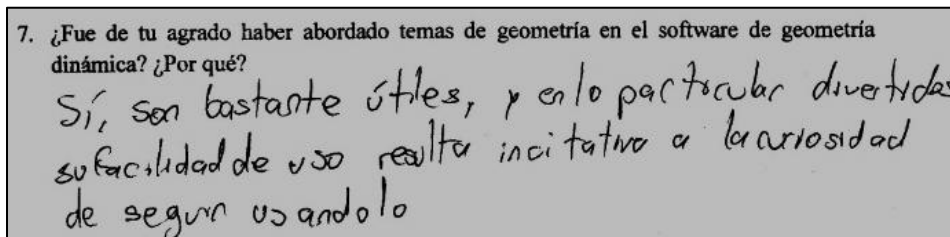 7. ¿Fue de tu agrado haber abordado temas de geometría en el software de geometría
dinámica? ¿Por qué?
Sí, son bastante útiles, y en lo particular divertidas
su facilidad de uso resulta incitativo a la curiosidad
de seguir usandolo